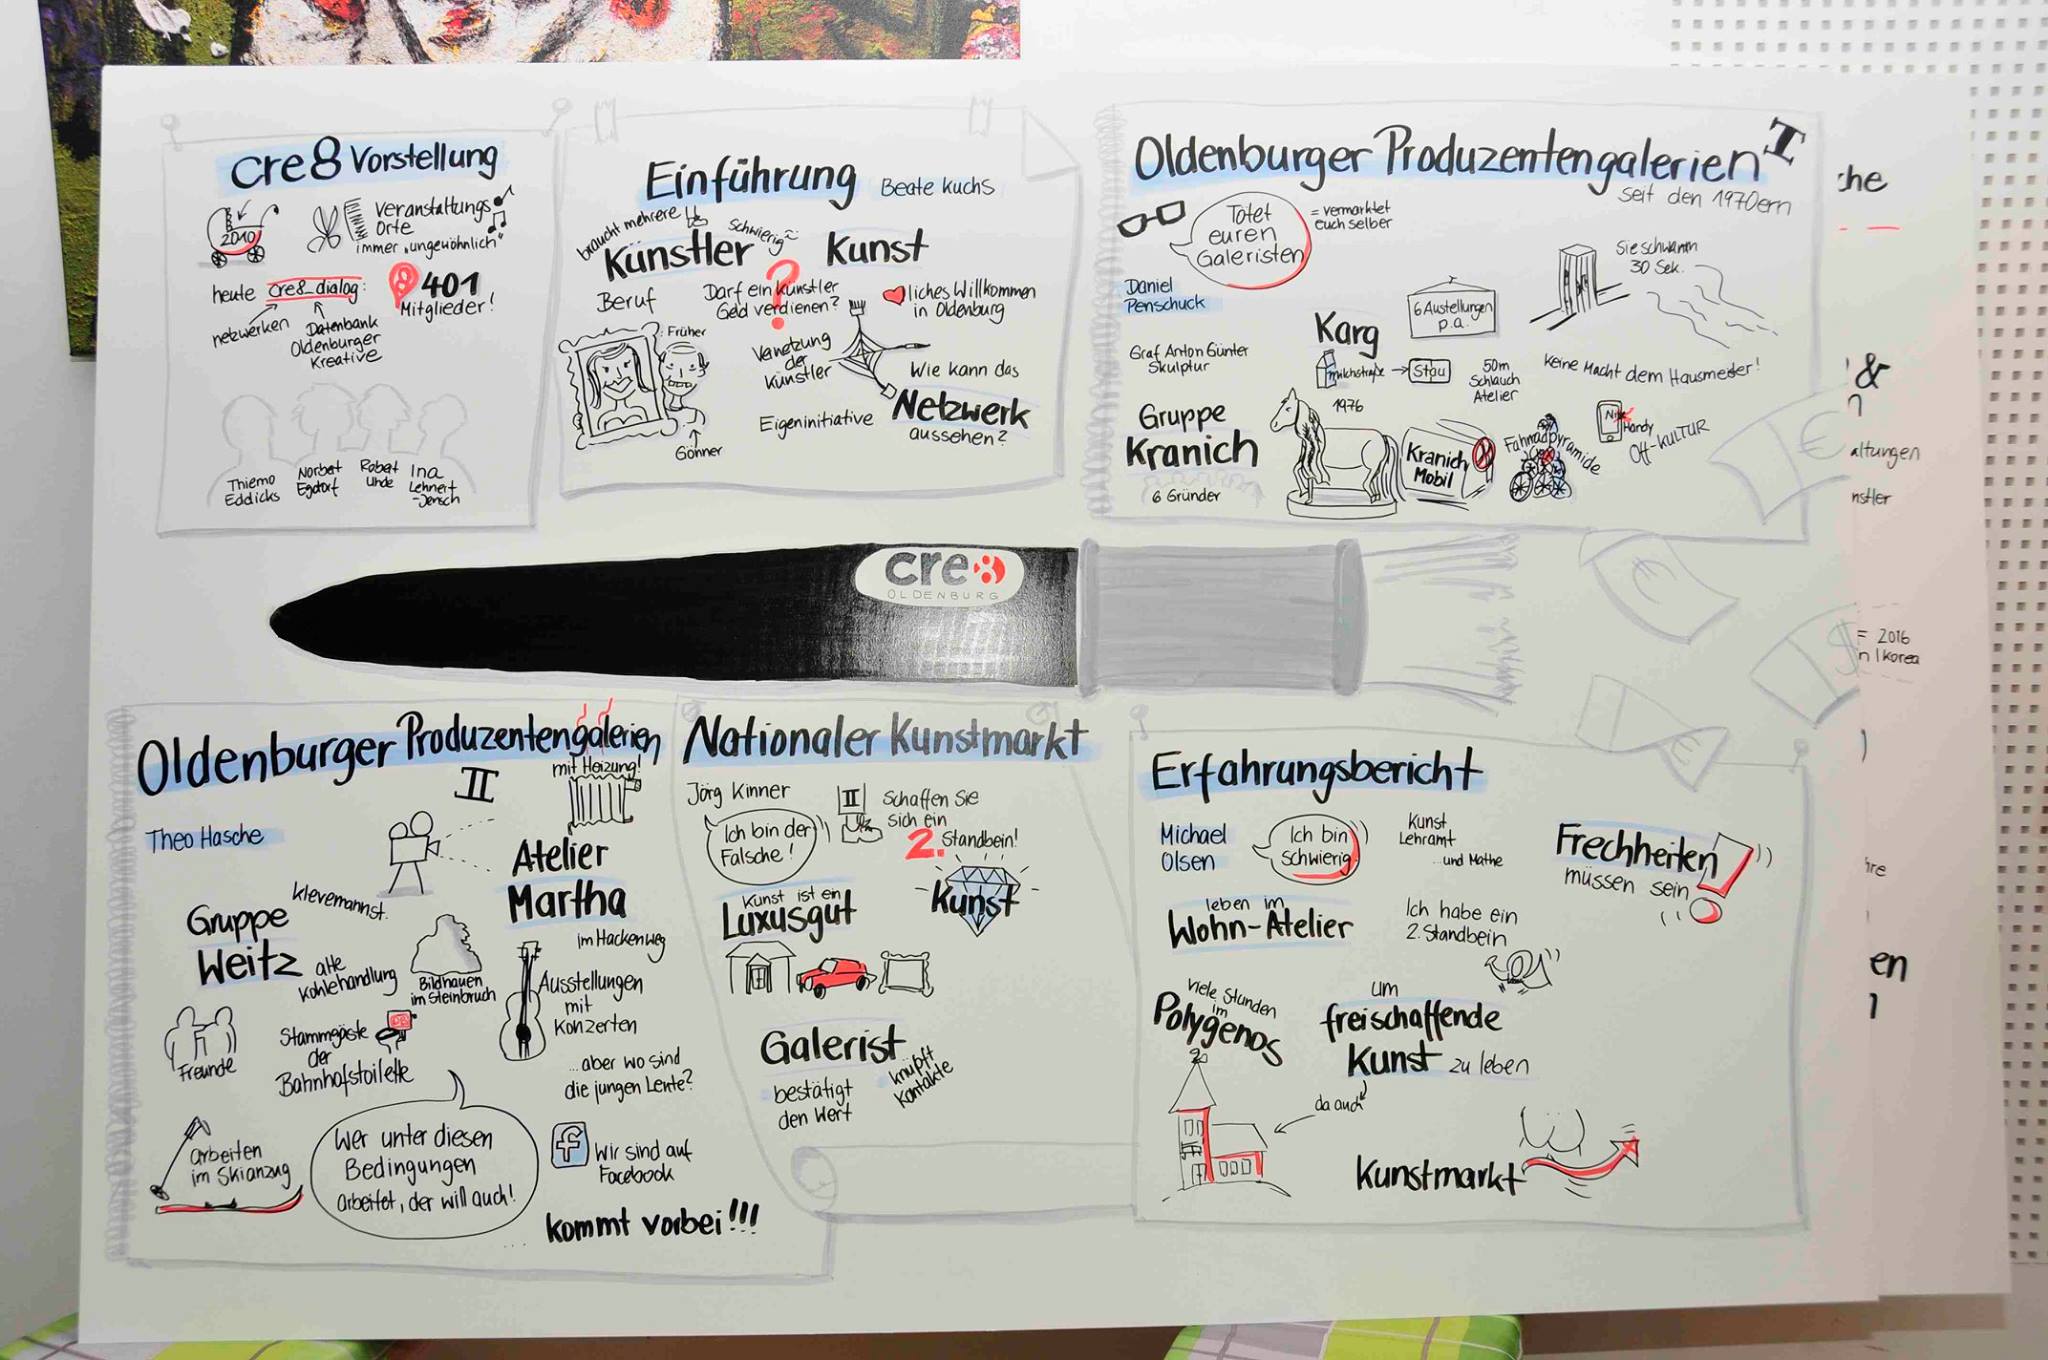 cre8 Vorstellung
2010
Veranstaltungs
Orte
immer „ungewöhnlich“
heute cre8_dialog:
netzwerken
Datenbank
Oldenburger
Kreative
401
Mitglieder!
Thiemo
Eddicks
Norbert
Egdorf
Robert
Uhde
Ina
Lehnert
-Jensch
Einführung
Beate Kuchs
braucht mehrere
Künstler
schwierig
Kunst
Beruf
Darf ein Künstler
Geld verdienen?
?
liches Willkommen
in Oldenburg
Früher
Gönner
Vernetzung
der
Künstler
Eigeninitiative
Wie kann das
Netzwerk
aussehen?
Oldenburger Produzentengalerien I
seit den 1970ern
Tötet
euren
Galeristen
= vermarktet
euch selber
Daniel
Penschuck
Graf Anton Günter
Skulptur
Gruppe
Kranich
6 Gründer
Karg
milchstraße → Stau
1976
50m
Schlauch
Atelier
6 Austellungen
p.a.
Sie schwamm
30 Sek.
Keine Macht dem Hausmeister!
Kranich
Mobil
Fahrradpyramide
Handy
Off-KULTUR
cre8
OLDENBURG
Oldenburger Produzentengalerien
II
mit Heizung!
Theo Hasche
Klevemannst.
Gruppe
Weitz
alte
Kohlehandlung
Bildhauen
im Steinbruch
Freunde
Stammgäste
der
Bahnhofstoilette
arbeiten
im Skianzug
Wer unter diesen
Bedingungen
arbeitet, der will auch!
Atelier
Martha
im Hackenweg
Ausstellungen
mit
Konzerten
...aber wo sind
die jungen Leute?
f
Wir sind auf
Facebook
.... kommt vorbei!!!
Nationaler Kunstmarkt
Jörg Kinner
Ich bin der
Falsche!
II
Schaffen Sie
sich ein
2. Standbein!
Kunst ist ein
Luxusgut
Kunst
Galerist
bestätigt
den Wert
knüpft
Kontakte
Erfahrungsbericht
Michael
Olsen
Ich bin
schwierig!
Kunst
Lehramt
...und Mathe
Frechheiten
müssen sein
!
leben im
Wohn-Atelier
Ich habe ein
2. Standbein
viele Stunden
im
Polygenos
um
freischaffende
Kunst zu leben
da auch
Kunstmarkt
che
&
altungen
nstler
F 2016
n | Korea
hre
en